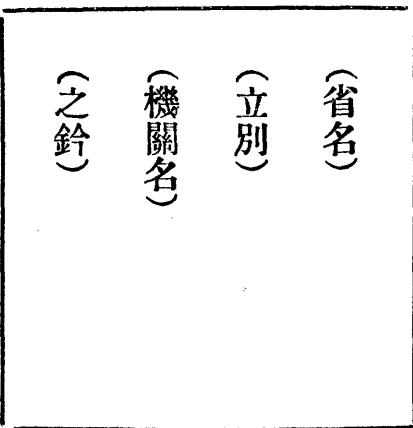 (省名)
(立別)
(機關名)
(之鈐)